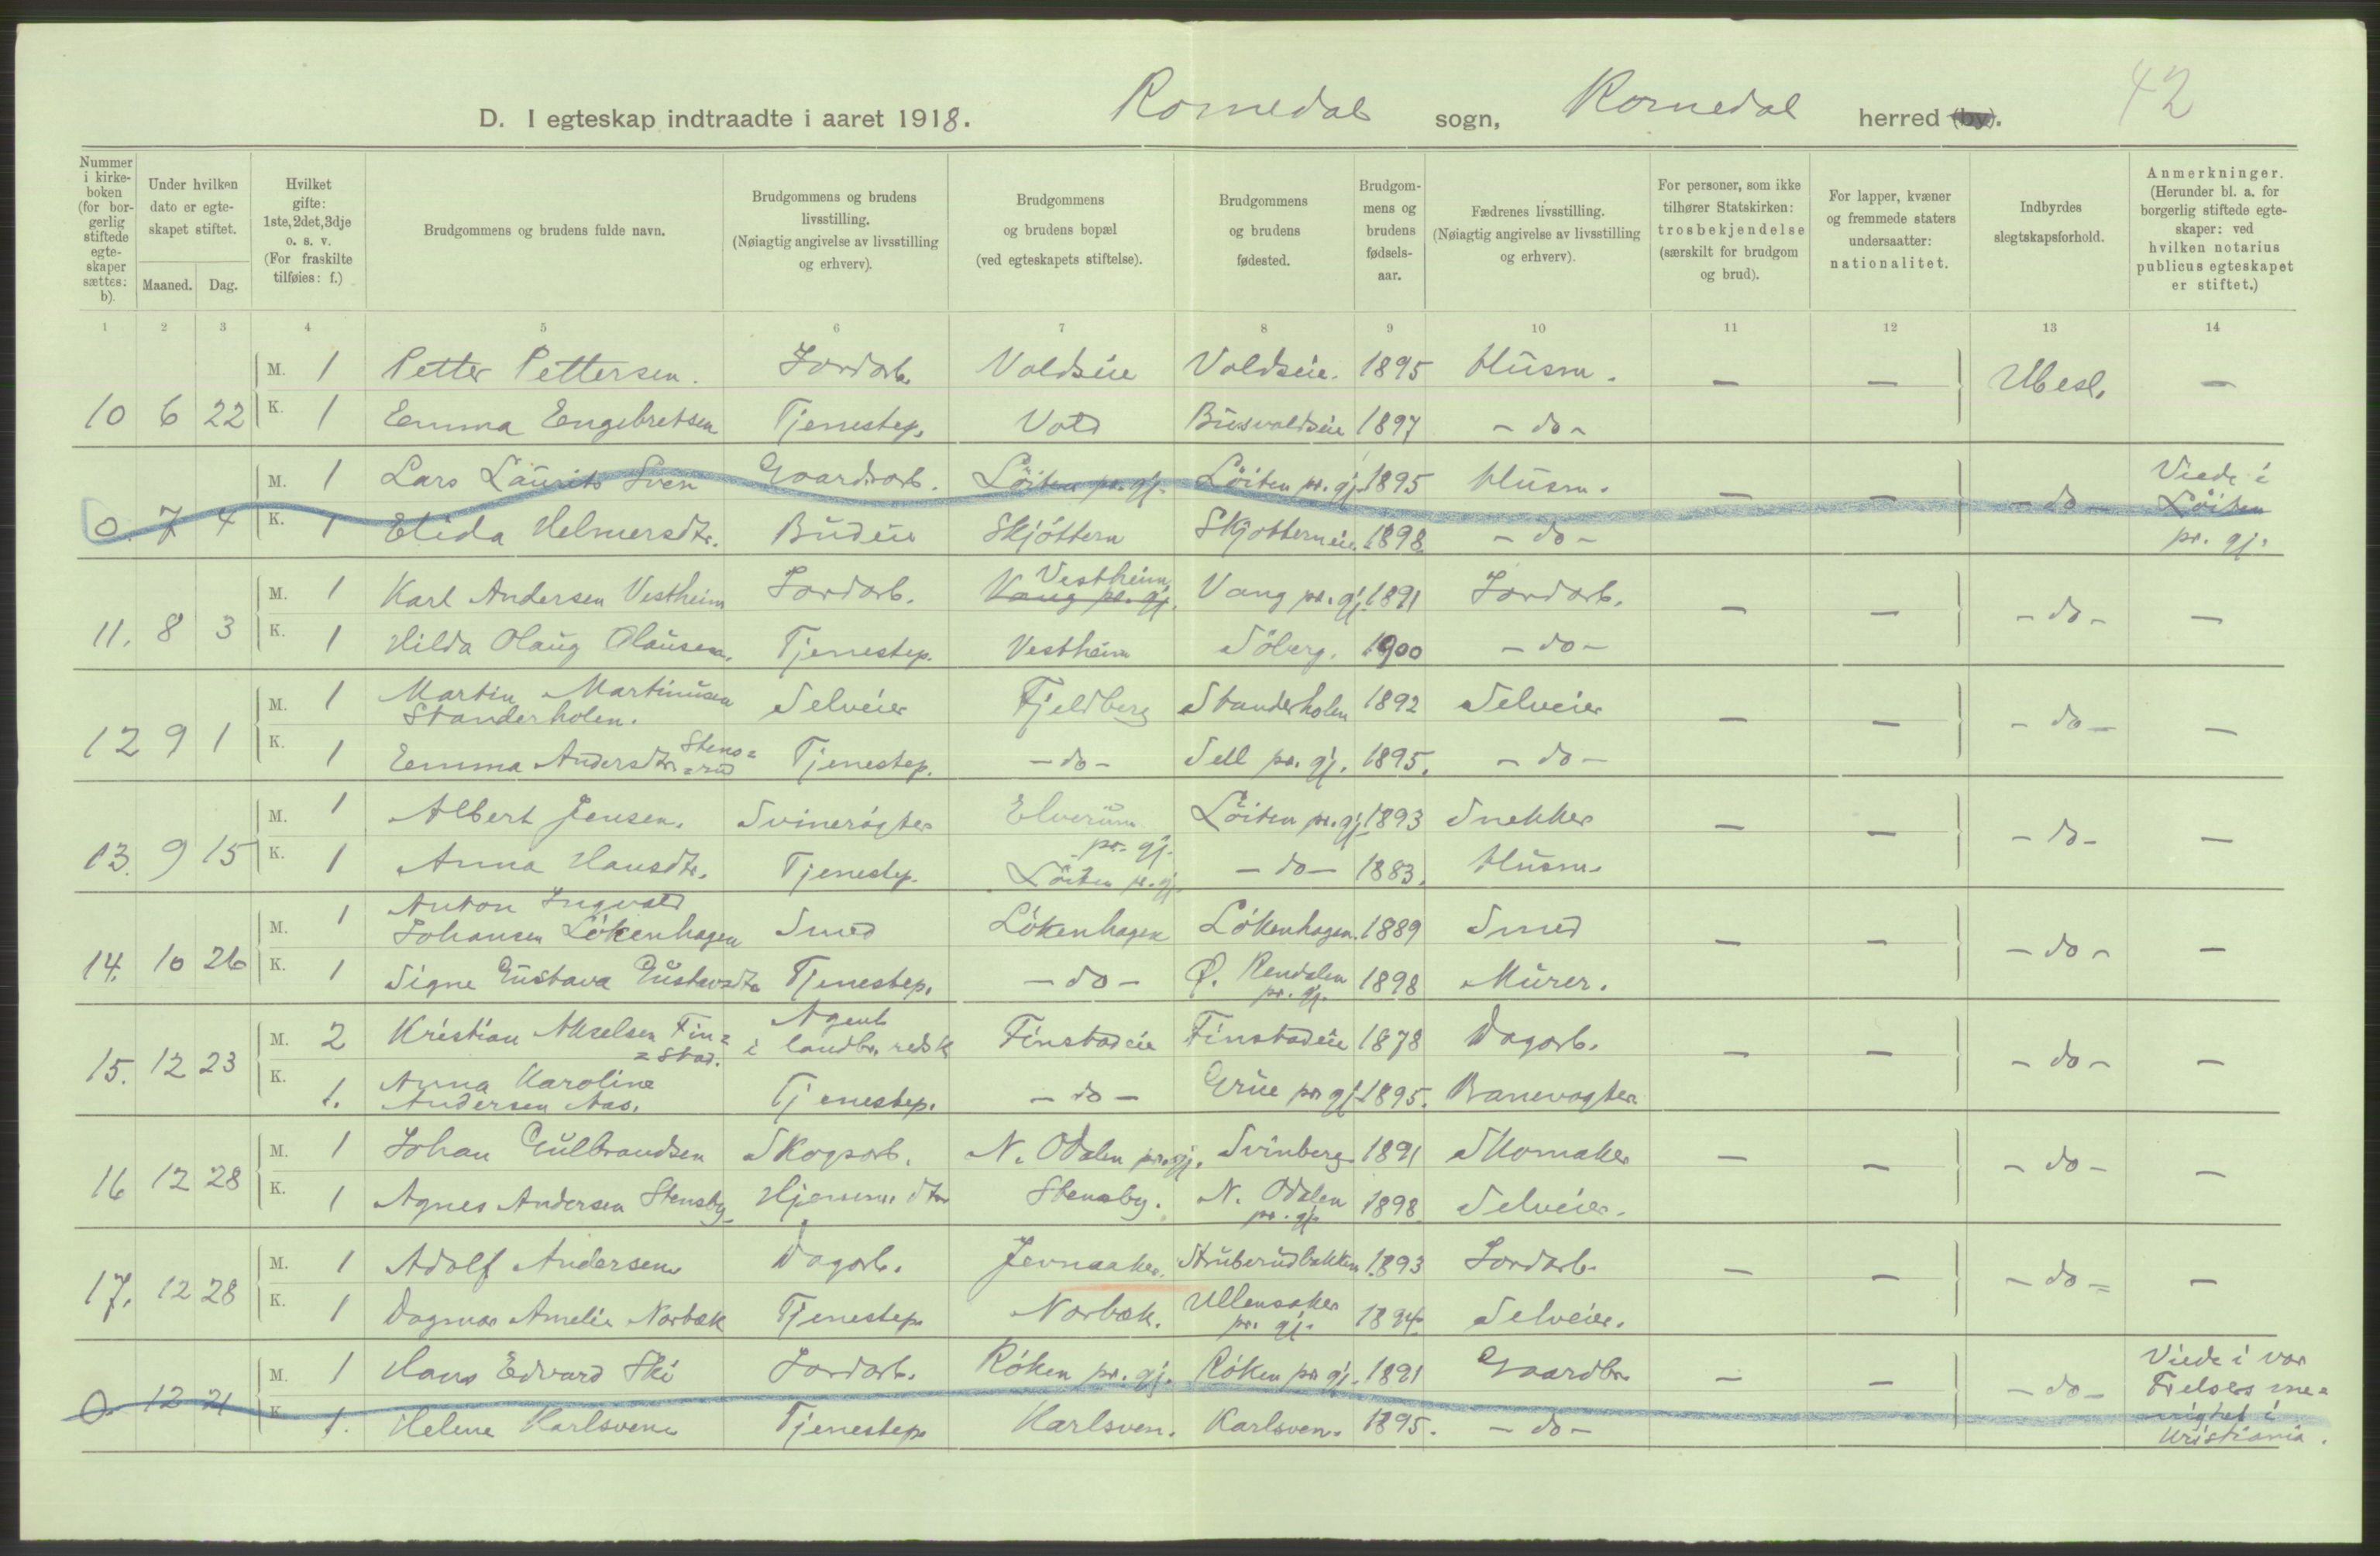 42
D. I egteskap indtraadte i aaret 1918. Romedal sogn, Romedal herred (by).
Nummer i kirkeboken (for borgerlig stiftede egteskaper sættes: b).
Under hvilken dato er egteskapet stiftet.
Maaned. Dag.
Hvilket gifte: 1ste, 2det, 3dje o. s. v. (For fraskilte tilføies: f.)
Brudgommens og brudens fulde navn.
Brudgommens og brudens livsstilling. (Nøiagtig angivelse av livsstilling og erhverv).
Brudgommens og brudens bopæl (ved egteskapets stiftelse).
Brudgommens og brudens fødested.
Brudgommens og brudens fødselsaar.
Fædrenes livsstilling. (Nøiagtig angivelse av livsstilling og erhverv).
For personer, som ikke tilhører Statskirken: trosbekjendelse (særskilt for brudgom og brud).
For lapper, kvæner og fremmede staters undersaatter: nationalitet.
Indbyrdes slegtskapsforhold.
Anmerkninger. (Herunder bl. a. for borgerlig stiftede egteskaper: ved hvilken notarius publicus egteskapet er stiftet.)
1 2 3 4 5 6 7 8 9 10 11 12 13 14
M. 1 Petter Pettersen. Jordarb. Voldseie Voldseie. 1895 Husm. — — Ubesl. —
10 6 22 K. 1 Emma Engebretsen Tjenestep. Vold Busvoldseie 1897 - do -
M. 1 Lars Laurits Sven Gaardsarb. Löiten pr. gj. Löiten pr. gj. 1895 Husm. — — - do - Viede i Löiten pr. gj.
0. 7 4 K. 1 Elida Helmersdtr. Budeie Skjöttern Skjotterneie 1898 - do -
M. 1 Karl Andersen Vestheim Jordarb. Vang pr. gj. Vestheim Vang pr. gj. 1891 Jordarb. — — - do - —
11. 8 3 K. 1 Hilda Olaug Olausen. Tjenestep. Vestheim Söberg. 1900 - do -
M. 1 Martin Martinusen Standerholen. Selveier Fjeldberg Standerholen 1892 Selveier — — - do - —
12 9 1 K. 1 Emma Andersdtr. Stens= =rud Tjenestep. - do - Sell pr. gj. 1895. - do -
M. 1 Albert Jensen. Svinerögter Elverum pr. gj. Löiten pr. gj. 1893 Snekker — — - do - —
13. 9 15 K. 1 Anna Hansdtr. Tjenestep. Löiten pr. gj. - do - 1883. Husm.
M. 1 Anton Ingvald Johansen Lökenhagen Smed Lökenhagen Lökenhagen. 1889 Smed — — - do - —
14. 10 26 K. 1 Signe Gustava Gustavsdtr Tjenestep. - do - Ø. Rendalen pr. gj. 1898 Murer.
M. 2 Kristian Akselsen Fin= =stad. Agent i landbr. redsk Finstadeie Finstadeie 1878 Dagarb. — — - do - —
15. 12 23 K. 1. Anna Karoline Andersen Aas. Tjenestep. - do - Grue pr gj. 1895. Banevogter
M. 1 Johan Gulbrandsen Skogsarb. N. Odalen pr. gj. Svinberg 1891 Skomaker — — - do - —
16 12 28 K. 1 Agnes Andersen Stensby Hjemme dtr Stensby. N. Odalen pr. gj. 1898. Selveier.
M. 1 Adolf Andersen Dagarb. Jevnaaker. Struberudbakken 1893 Jordarb. — — - do - —
17. 12 28 K. 1 Dagmar Amelie Norbæk Tjenestep. Norbæk. Ullensaker pr. gj. 1894 Selveier.
M. 1 Hans Edvard Ski Jordarb. Röken pr. gj. Röken pr gj. 1891 Gaardbr. — — - do - Viede i vor Frelsers me= nighet i Kristiania.
0. 12 21 K. 1. Helene Karlsven Tjenestep. Karlsven. Karlsven. 1895. - do -